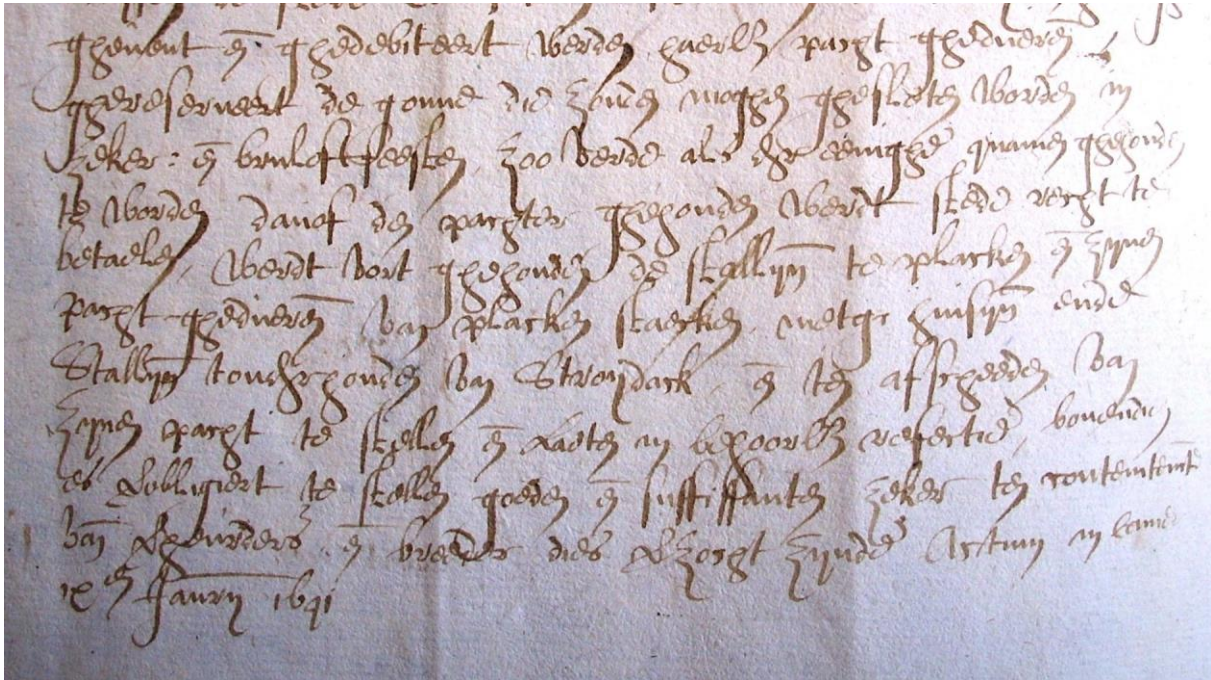 ghevent en̄ ghedebiteert werden haerl. pacht ghedueren̄
ghereserveert de gonne die zouden moghen ghesleten worden in
zeker: en̄ bruloftfeesten, zoo verde als der eenighe quamen ghehouden
te worden danof den pachter ghehouden werdt stede recht te
betaelen, werdt vort ghehouden de stallyn̄ te placken en̄ zynen
pacht ghedueren̄ van placken staecken, metgs huisyn̄ ende
Stallyn̄ tonderhouden van Stroydack, en̄ ten afscheeden van
zynen pacht te stellen en̄ laeten in behoorl. refectie, bovendien
es gobligiert te stellen goeden en̄ suffissanten zeker ten contentemte
van verheurders en̄ breeder dies verzocht zynde Actum in camere
ix en̄ Janry 1641